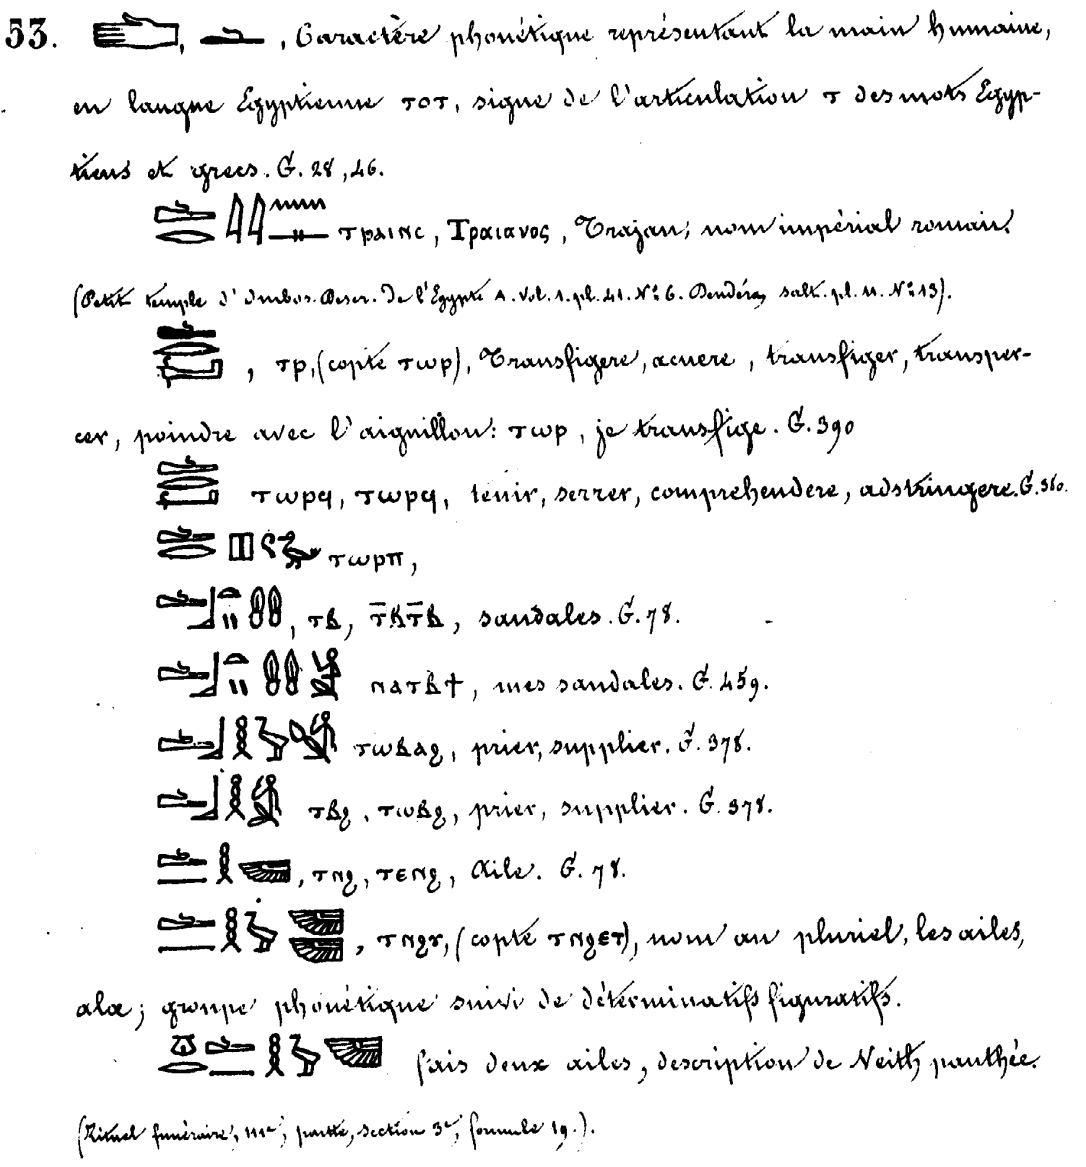 53. 𓂧, 𓂧, Caractère phonétique représentant la main humaine,
en langue Égyptienne ⲧⲟⲧ, signe de l'articulation ⲧ des mots Égyp-
tiens et grecs. G. 28, 46.
ⲧⲣⲁⲓⲛⲥ, Τραιανος, Trajan; nom impérial romain.
(Petit temple d'Ombos. Descr. de l'Égypte A. vol. 1. pl. 41. Nº 6. Dendéra, salt. pl. 11. Nº 13).
, ⲧⲣ, (copte ⲧⲱⲣ), Transfigere, acuere, transfiger, transper-
cer, poindre avec l'aiguillon: ⲧⲱⲣ, je transfige. G. 390
ⲧⲱⲣϥ, ⲧⲱⲣϥ, tenir, serrer, comprehendere, adstringere. G. 360.
ⲧⲱⲣⲡ,
, ⲧⲃ, ⲧ̅ⲃⲧ̅ⲃ, sandales. G. 78.
ⲛⲁⲧⲃϯ, mes sandales. G. 459.
ⲧⲱⲃⲁϩ, prier, supplier. G. 378.
ⲧⲃϩ, ⲧⲱⲃϩ, prier, supplier. G. 378.
, ⲧⲛϩ, ⲧⲉⲛϩ, Aile. G. 78.
, ⲧⲛϩⲩ, (copte ⲧⲛϩⲉⲧ), nom au pluriel, les ailes,
alæ; groupe phonétique suivi de déterminatifs figuratifs.
fais deux ailes, description de Neith panthée.
(Rituel funéraire, IIIe, partie, section 3e, formule 19.).